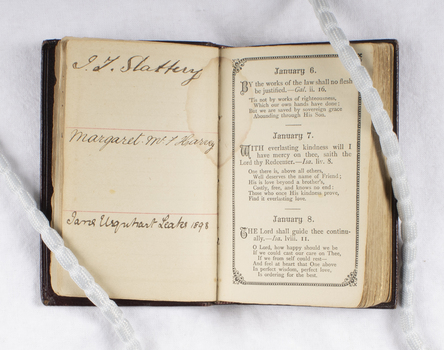 J. T. Slattery
Margaret
Jane Urquhart Leake 1898
January 6.
BY the works of the law shall no flesh
be justified.—Gal. ii. 16.
'Tis not by works of righteousness,
Which our own hands have done;
But we are saved by sovereign grace
Abounding through His Son.
January 7.
WITH everlasting kindness will I
have mercy on thee, saith the
Lord thy Redeemer.—Isa. liv. 8.
One there is, above all others,
Well deserves the name of Friend;
His is love beyond a brother's,
Costly, free, and knows no end:
Those who once His kindness prove,
Find it everlasting love.
January 8.
THE Lord shall guide thee continu-
ally.—Isa. lviii. 11.
O Lord, how happy should we be
If we could cast our care on Thee,
If we from self could rest—
And feel at heart that One above
In perfect wisdom, perfect love,
Is ordering for the best.